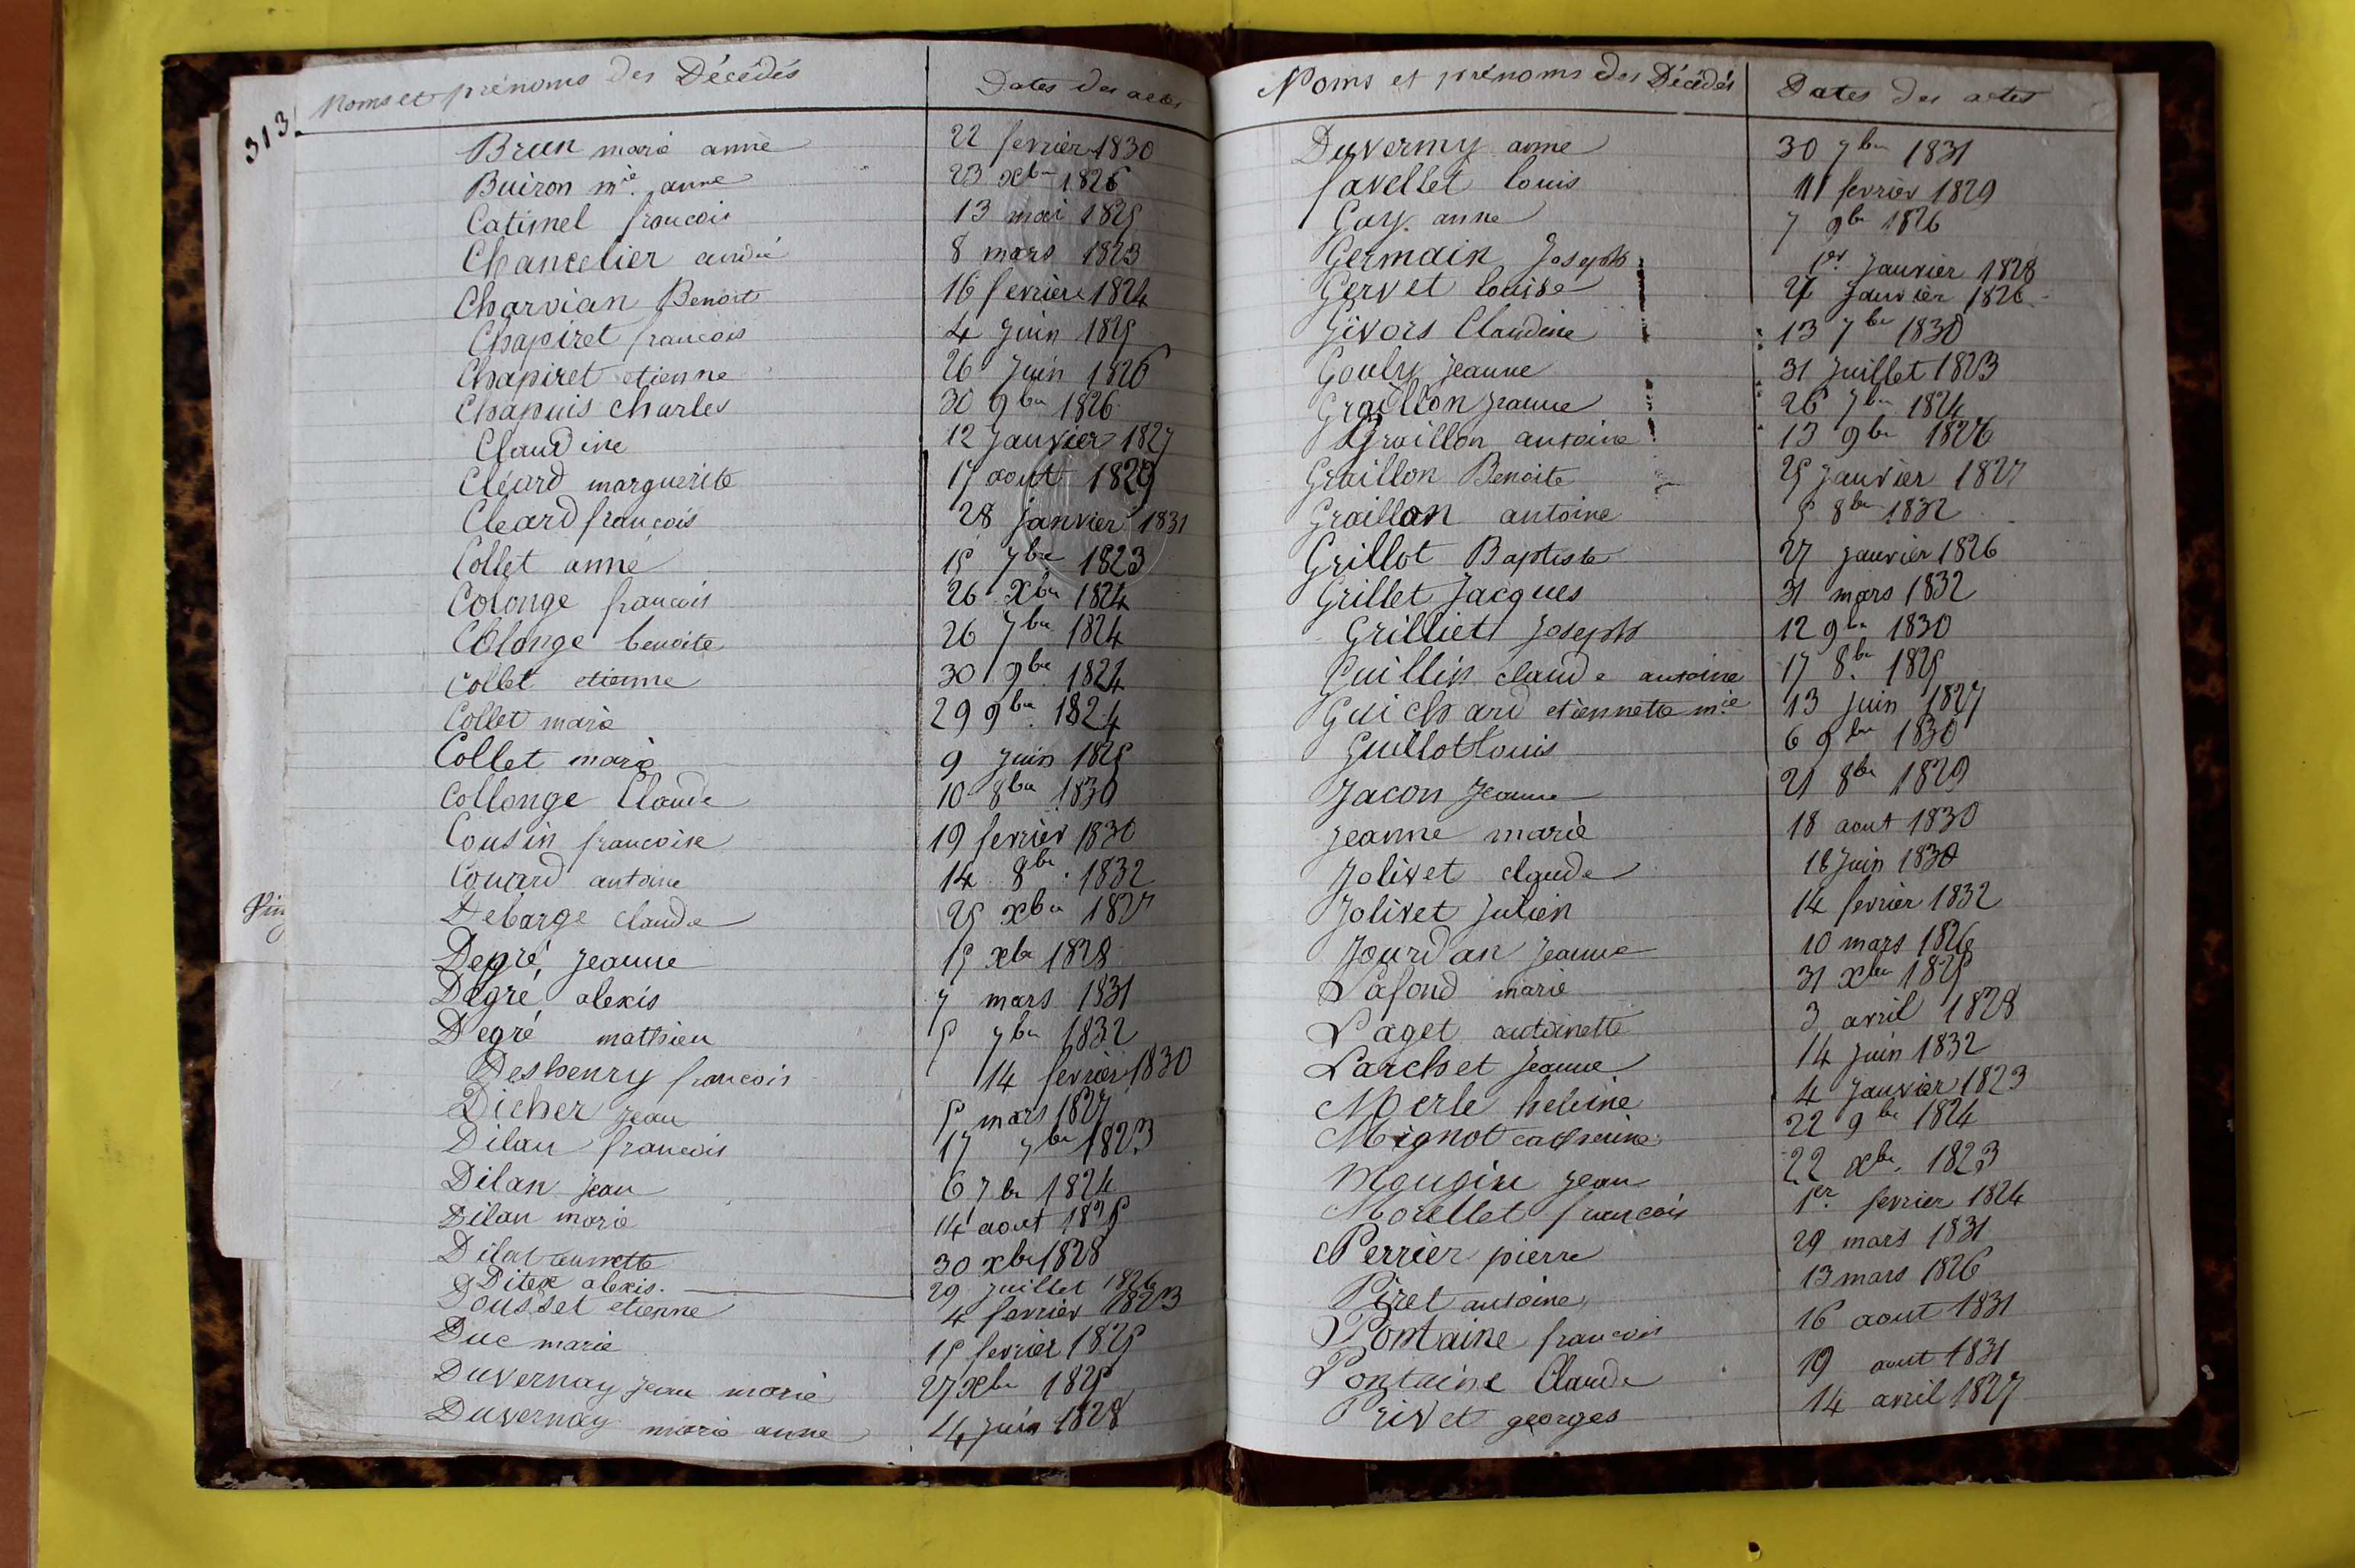 313
Noms et prénoms des Décédés Dates des actes
Brun marie anne 22 fevrier 1830
Buiron mie. anne 23 xbre 1826
Catimel francois 13 mai 1825
Chancelier andré 8 mars 1823
Charvian Benoit 16 fevrier 1824
Chapiret francois 4 Juin 1825
Chapiret etienne 26 Juin 1826
Chapuis charles 30 9bre 1826
Claudine 12 Janvier 1827
Cléard marguerite 17 aout 1829
Cleard françois 28 janvier 1831
Collet anne 15 7bre 1823
Colonge francois 26 xbre 1824
Colonge benoite 26 7bre 1824
Collet etienne 30 9bre 1824
Collet marie 29 9bre 1824
Collet marie 9 Juin 1825
Collonge Claude 10 8bre 1830
Cousin francoise 19 fevrier 1830
Couard antoine 14 8bre 1832
Debarge claude 25 xbre 1827
Degré Jeanne 15 xbre 1828
Degré alexis 7 mars 1831
Degré mathieu 5 7bre 1832
Deshenry francois 14 fevrier 1830
Dicher Jean 5 mars 1827
Dilan francois 17 7bre 1823
Dilan Jean 6 7bre 1824
Dilan marie 14 aout 1825
30 xbre 1828
Ditex alexis. 29 Juillet 1826
Dousset etienne 4 fevrier 1823
Duc marie 15 fevrier 1825
Duvernay Jean marie 27 xbre 1825
Duvernay marie anne 4 juin 1828
Noms et prénoms des Décédés Dates des actes
Duvermy anne 30 7bre 1831
favellet louis 11 fevrier 1829
Gay anne 7 9bre 1826
Germain Joseph 1er Janvier 1828
Gervet louise Janvier 1826
Givors Claudine 13 7bre 1830
Gouly Jeanne 31 Juillet 1823
Graillon Jeanne 26 7bre 1824
Graillon antoine 13 9bre 1826
Graillon Benoite 25 Janvier 1827
Graillon antoine 5 8bre 1832
Grillot Baptiste 27 Janvier 1826
Grillet Jacques 31 mars 1832
Grilliet Joseph 12 9bre 1830
Guillin claude antoine 17 8bre 1825
Guichard etiennette mie 13 Juin 1827
Guillot louis 6 9bre 1830
Jacon Jeanne 21 8bre 1829
Jeanne marie 18 aout 1830
Jolivet claude 16 Juin 1830
Jolivet Julien 14 fevrier 1832
Jourdan Jeanne 10 mars 1826
Lafond marie 31 xbre 1825
Laget antoinette 3 avril 1828
Larchet Jeanne 14 Juin 1832
Merle heleine 4 Janvier 1823
Mignot catherine 22 9bre 1824
Mougin Jean 22 xbre. 1823
Morellet francois 1er. fevrier 1824
Perrier pierre 29 mars 1831
Piret antoine 13 mars 1826
Pontaine francois 16 aout 1831
Pontaine Claude 19 aout 1831
Privet georges 14 avril 1827